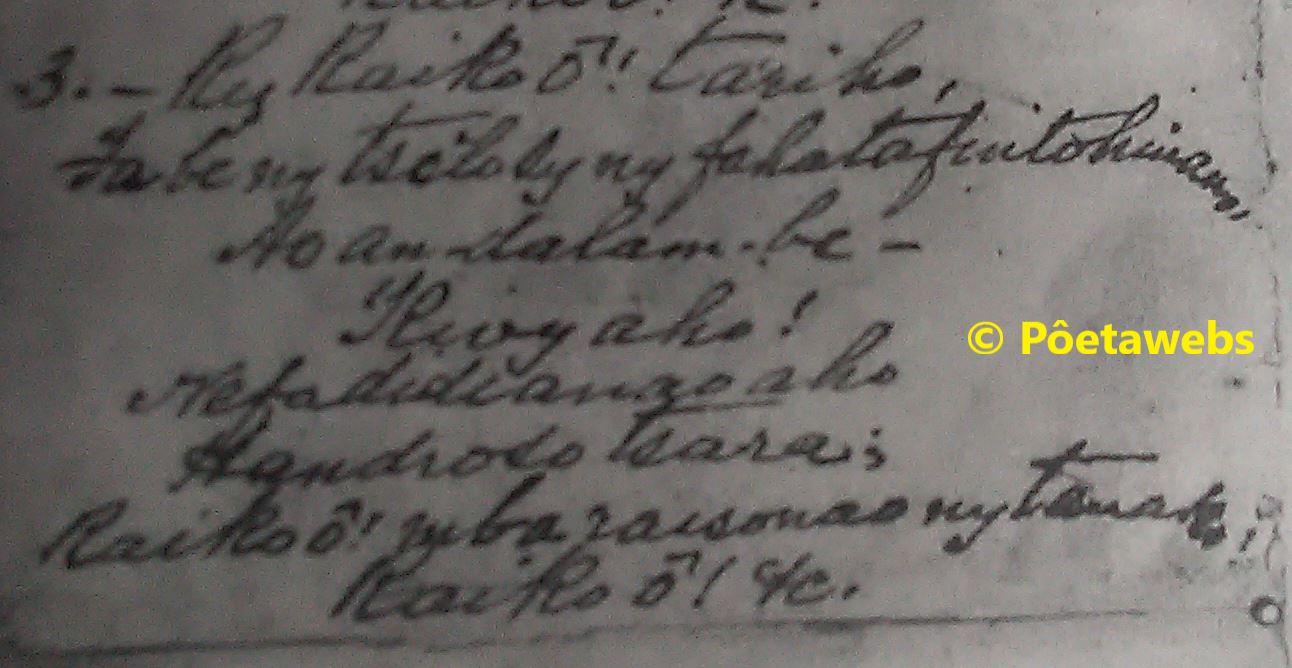 Raiko ô! &c.
3. — Ry Raiko ô! tariho,
Fa be ny tsilo sy ny fahatafintohinana,
Ao an-dalam-be —
Kivy aho!
Nefa didianao aho
Handroso tsara;
Raiko ô! mba raisonao ny tanako,
Raiko ô! &c.
© Pôetawebs